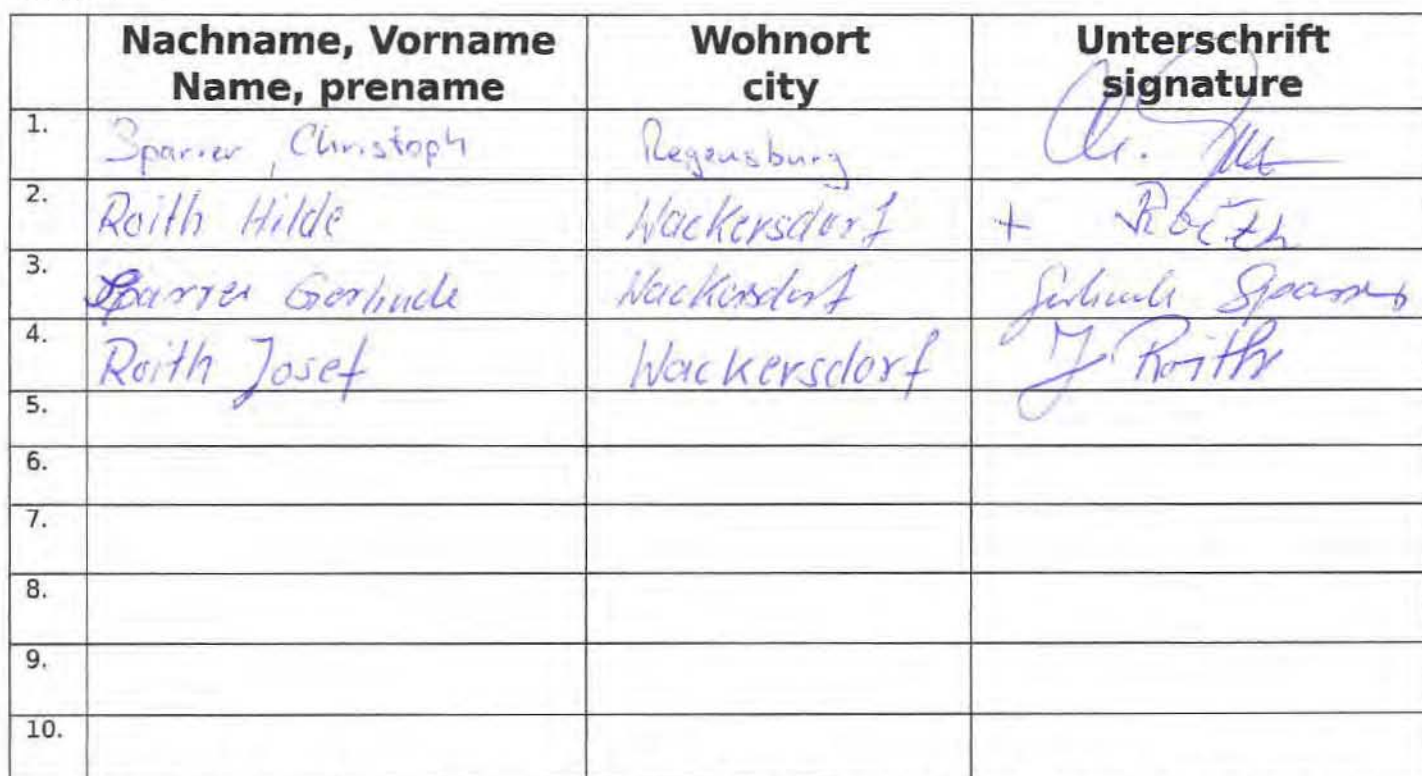 Nachname, Vorname Wohnort Unterschrift
Name, prename city signature
1. Sparrer, Christoph Regensburg Ch.
2. Roith Hilde Wackersdorf + Roith
3. Sparrer Gerlinde Wackersdorf Gerlinde Sparrer
4. Roith Josef Wackersdorf J. Roith
5.
6.
7.
8.
9.
10.